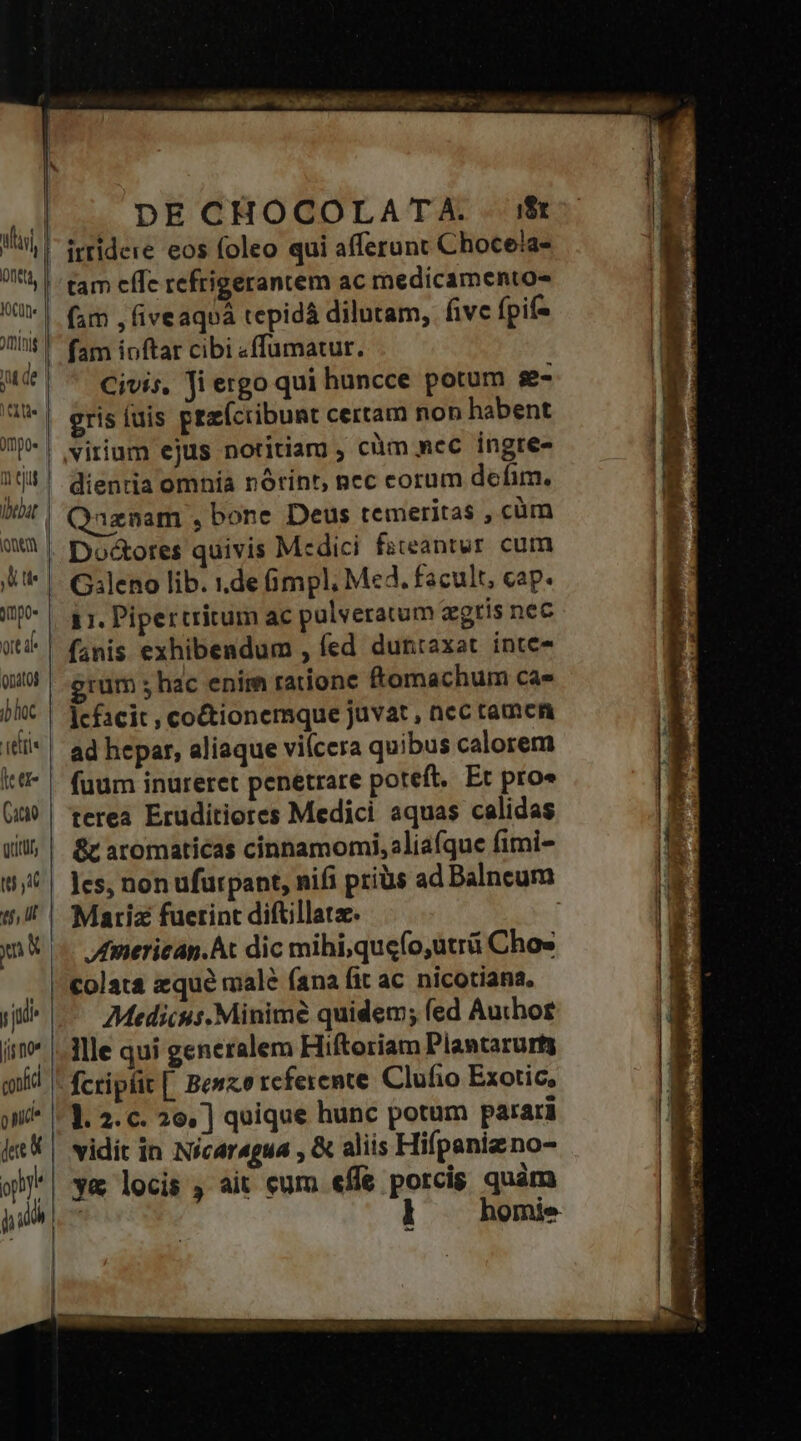 DE CHOCOLATA. 161
irridere eos ſoleo qui afferunt Chocola-
tam eſſe refrigerantem ac medicamento-
ſam , ſive aquâ tepidâ dilutam, ſive ſpiſ-
ſam inſtar cibi aſſumatur.
Civis. Ji ergo qui huncce potum æ-
gris ſuis præſcribunt certam non habent
virium ejus notitiam , cùm nec ingre-
dientia omnia nôrint, nec eorum deſim.
Quænam , bone Deus temeritas , cùm
Doctores quivis Medici fateantur cum
Galeno lib. 1. de ſimpl. Med. facult, cap.
11. Piper tritum ac pulveratum ægris nec
ſanis exhibendum , ſed duntaxat inte-
grum ; hâc enim ratione ſtomachum ca-
lefacit , coctionemque juvat , nec tamen
ad hepar, aliaque viſcera quibus calorem
ſuum inureret penetrare poteſt. Et pro-
terea Eruditiores Medici aquas calidas
& aromaticas cinnamomi, aliaſque ſimi-
les, non uſurpant, niſi priùs ad Balneum
Mariæ fuerint diſtillatæ.
American. At dic mihi, queſo, utrū Cho-
colata æquè malè ſana ſit ac nicotiana.
Medicus. Minimè quidem; ſed Author
Ille qui generalem Hiſtoriam Plantarum
ſcripſit [ Benzo referente Cluſio Exotic,
l. 2. c. 20, ] quique hunc potum parari
vidit in Nicaragua , & aliis Hiſpaniæ no-
væ locis , ait eum eſſe porcis quàm
l homi-